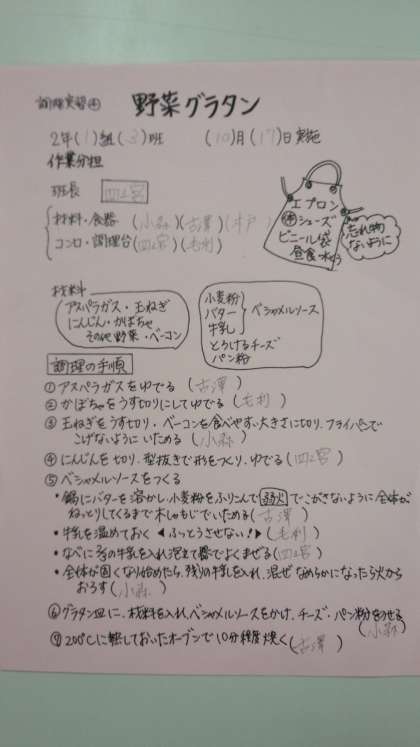 調理実習④ 野菜グラタン
2年(1)組(3)班 (10)月(17)日実施
作業分担
班長 四宮
材料・食器 (小森)(古澤)(木戸)
コンロ・調理台(四宮)(毛利)
エプロン
体シューズ
ビニール袋
昼食・水とう
忘れ物
ないように
材料
アスパラガス・玉ねぎ
にんじん・かぼちゃ
その他野菜・ベーコン
小麦粉
バター
牛乳
ベシャメルソース
とろけるチーズ
パン粉
調理の手順
①アスパラガスをゆでる (古澤)
②かぼちゃをうす切りにしてゆでる(毛利)
③玉ねぎをうす切り、ベーコンを食べやすい大きさに切り、フライパンで
こげないようにいためる(小森)
④にんじんを切り、型抜きで形をつくり、ゆでる(四宮)
⑤ベシャメルソースをつくる
・鍋にバターを溶かし、小麦粉をふり入れて弱火でこがさないように全体が
ねっとりしてくるまで木しゃもじでいためる(古澤)
・牛乳を温めておく ◀ふっとうさせない!▶(毛利)
・なべに の牛乳を入れ泡立て器でよくまぜる(四宮)
・全体が固くなり始めたら、残りの牛乳を入れ、混ぜなめらかになったら火から
おろす(小森)
⑥グラタン皿に、材料を入れ、ベシャメルソースをかけ、チーズ・パン粉をのせる
(小森)
⑦200℃に熱しておいたオーブンで10分程度焼く(古澤)